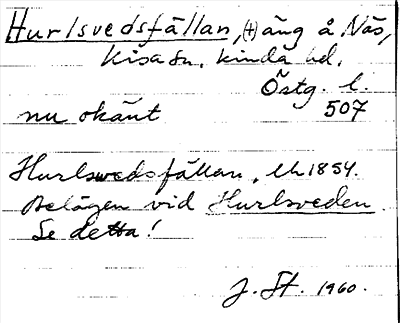 Hurlsvedsfällan, (+) äng å Näs,
Kisa sn. Kinda hd.
Östg. l.
nu okänt 507
Hurlsvedsfällan, Lh 1854.
Belägen vid Hurlsveden
Se detta!
J. St. 1960.